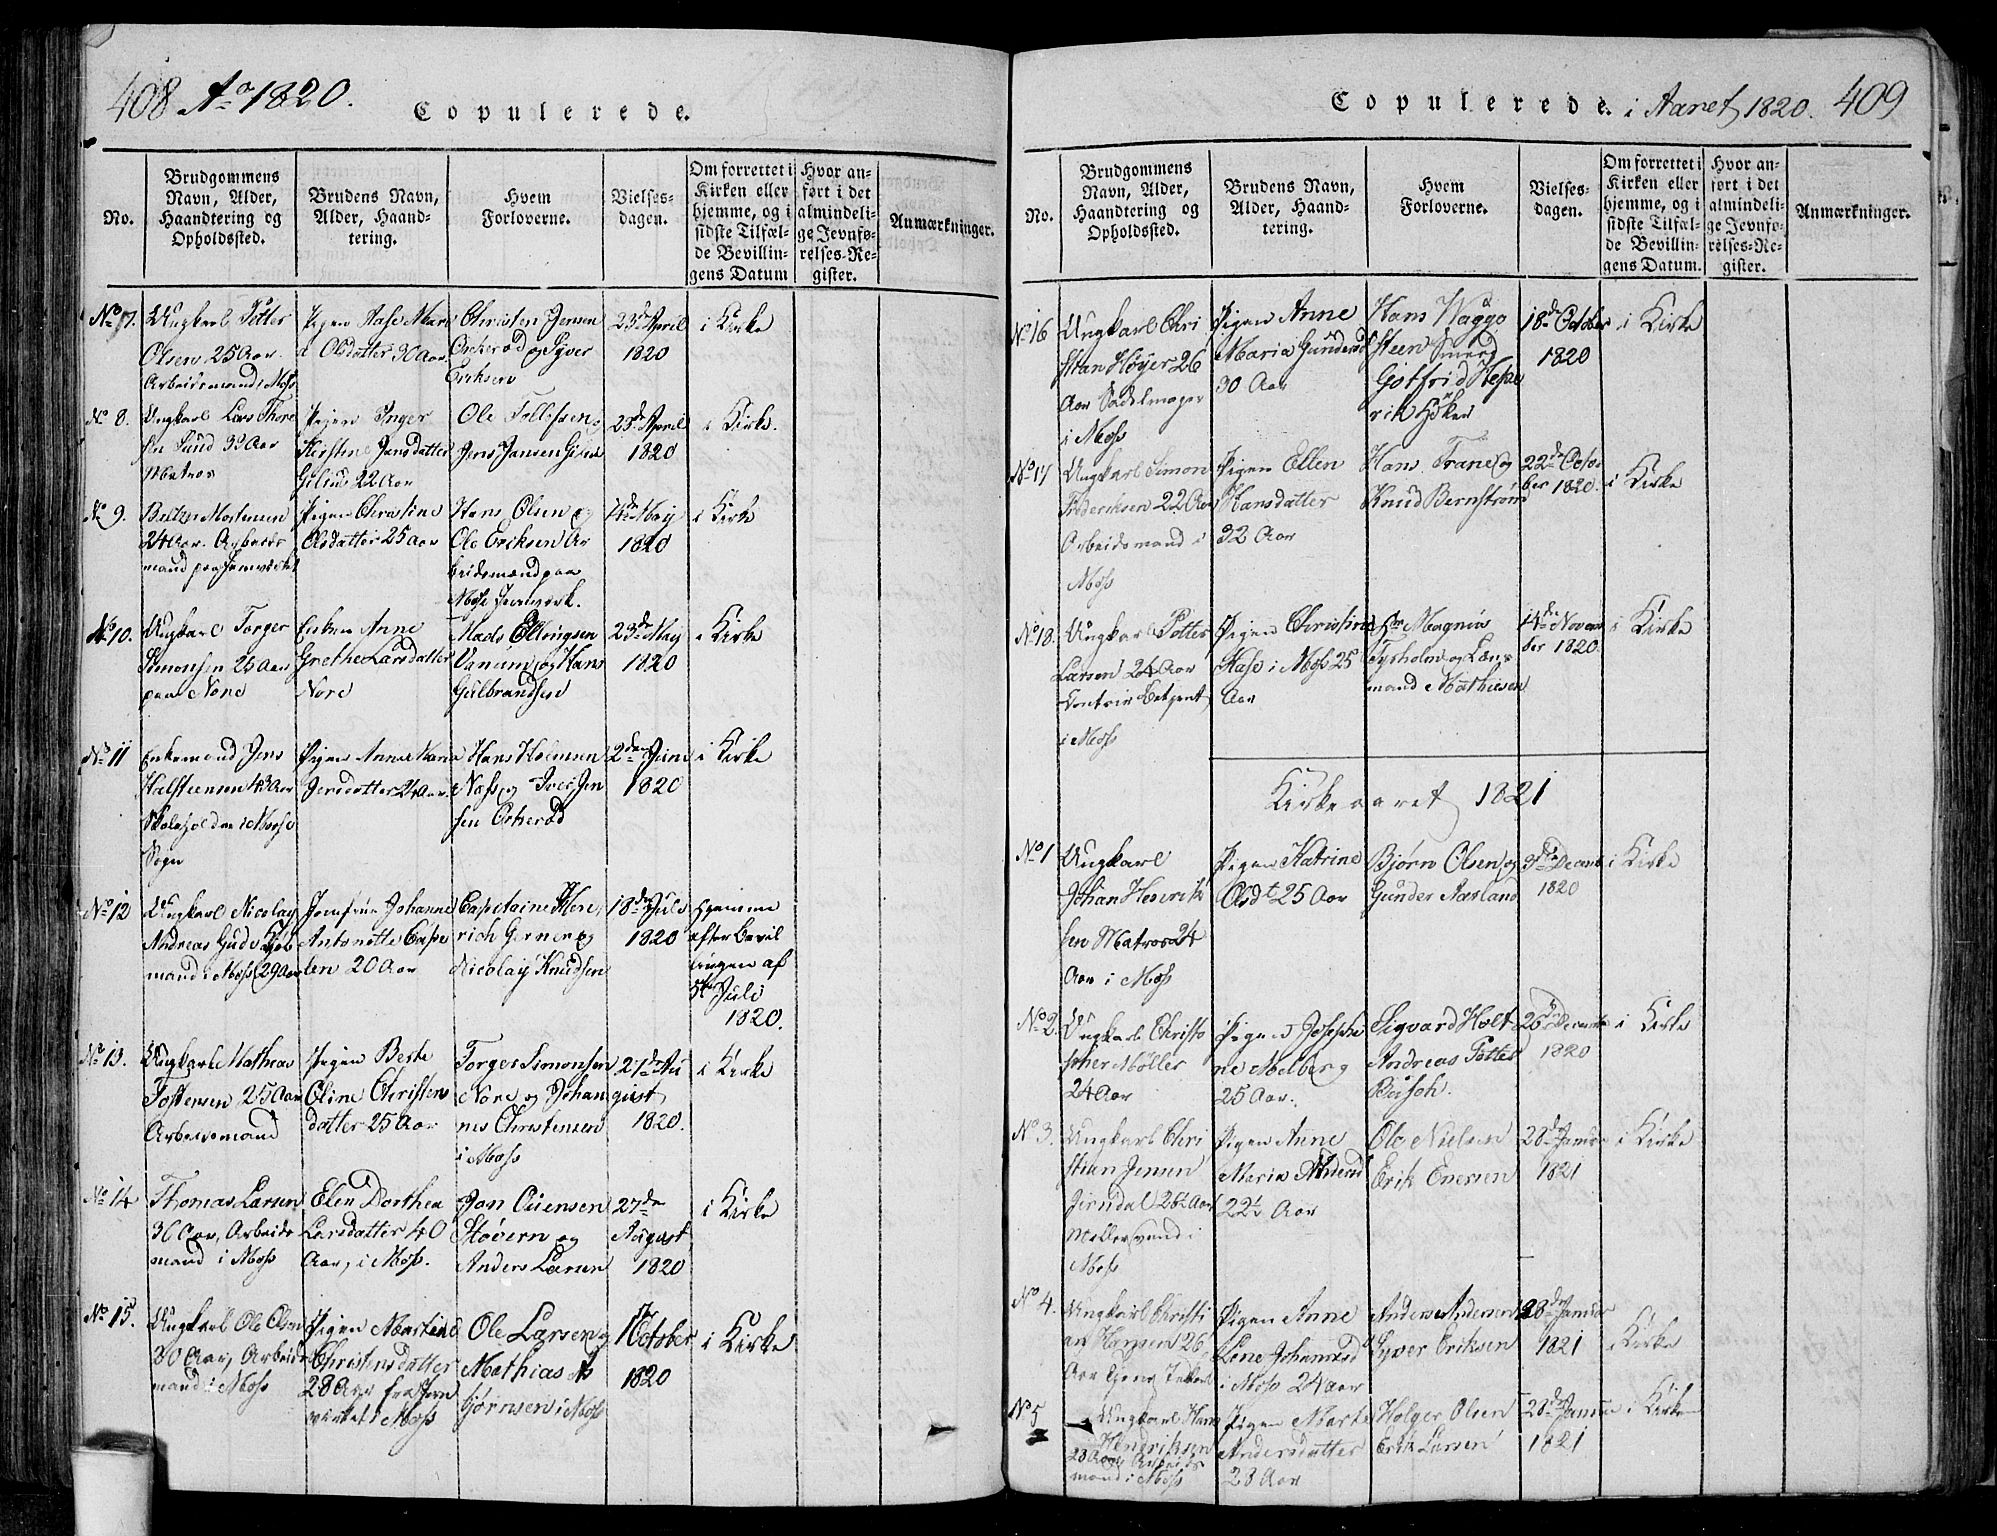 408 Ao 1820.
Copulerede.
No.
Brudgommens
Navn, Alder,
Haandtering og
Opholdssted.
Brudens Navn,
Alder, Haand-
tering.
Hvem
Forloverne.
Vielses-
dagen.
Om forrettet i
Kirken eller
hjemme, og i
sidste Tilfæl-
de Bevillin-
gens Datum
Hvor an-
ført i det
almindeli-
ge Jevnfø-
relses-Re-
gister.
Anmærkninger.
No 7.
Ungkarl Petter
Olsen 25 Aar.
Arbeidsmand i Moss
Pigen Aase
Olsdatter 30 Aar
Christen Jensen
og Syver
Eriksen
23de April
1820
i Kirke
No 8.
Ungkarl Lars Thore
sen Lund 32 Aar
Matros
Pigen Inger
Kirstine Jansdatter
22 Aar
Ole Tollefsen
Jens Jansen
23de April
1820
i Kirke.
No 9.
Mortensen
24 Aar. Arbeids
mand paa Jernværket
Pigen Christine
Olsdatter 25 Aar
Hans Olsen og
Ole Eriksen Ar
beidsmænd paa
Moss Jernværk.
4de May
1820
i Kirke
No 10.
Ungkarl Torger
Simonsen 26 Aar
paa Nore
Enken Anne
Grethe Larsdatter
Nore
Mads Ellingsen
Vanem og Hans
Gulbrandsen
23de May
1820
i Kirke
No 11
Enkemand Jens
Halsteensen 43 Aar
Skoleholder i Mosse
Sogn
Pigen Anne Marie
Jensdatter 24 Aar.
Hans Holmsen
Næss og Iver Jen
sen
2den Juni
1820
i Kirke
No 12
Ungkarl Nicolay
Andreas Gude Kjøb
mand i Moss 29 Aar
Jomfrue Johanne
Antonette
20 Aar
Capitaine
Gerner og
Nicolay Knudsen
18de Juli
1820
Hjemme
efter Bevil
lingen af
5te Juli
1820.
No 13.
Ungkarl Mathias
Tostensen 25 Aar
Arbeidsmand
Pigen Berte
Oline Christens
datter 25 Aar
Torger Simonsen
Nore og Johan
nes Christensen
i Moss
27de Au
gust
1820.
i Kirke
No 14
Thomas Larsen
36 Aar, Arbeids
mand i Moss
Elen Dorthea
Larsdatter 40
Aar, i Moss.
Jon
Støvern og
Anders Larsen
27de
August
1820
i Kirke
No 15.
Ungkarl Ole Olsen
30 Aar, Arbeids
mand i Moss
Pigen
Christensdatter
28 Aar fra Jern
værket i Moss
Ole Larsen og
Mathias As
gjørnsen i Moss
October
1820
i Kirke
Copulerede. i Aaret 1820. 409
No.
Brudgommens
Navn, Alder,
Haandtering og
Opholdssted.
Brudens Navn,
Alder, Haand-
tering.
Hvem
Forloverne.
Vielses-
dagen.
Om forrettet i
Kirken eller
hjemme, og i
sidste Tilfæl-
de Bevillin-
gens Datum.
Hvor an-
ført i det
almindeli-
ge Jevnfø-
relses-Re-
gister.
Anmærkninger.
No 16
Ungkarl Chri
stian Høyer 26
Aar Sadelmager
i Moss
Pigen Anne
Maria Gundersd
30 Aar
Hans
Steen Smed
Gotfrid
Høker
18de October
1820
i Kirke
No 17
Ungkarl Simon
Frideriksen 22 Aar
Arbeidsmand i
Moss
Pigen Ellen
Hansdatter
32 Aar
Hans Trane og
Knud Bernstrøm
22de Octo
ber 1820.
i Kirke
No 18.
Ungkarl Petter
Larsen 24 Aar
i Moss
Pigen Christine
i Moss 25
Aar
Hr Magnus
Tysholm og Læns
mand Mathiesen
14de Novem
ber 1820.
i Kirke
Kirkeaaret 1821
No 1
Ungkarl
Johan Henrik
sen Matros 24
Aar i Moss
Pigen Katrine
Olsdt 25 Aar
Bjørn Olsen og
Gunder Aasland
3de Decemb
1820
i Kirke
No 2
Ungkarl Christo
pher Møller
24 Aar
Pigen Josephi
ne Melberg
25 Aar.
Sigvard Holt
Andreas Petter
Busch.
26de Decemb
1820
i Kirke
No 3.
Ungkarl Chri
stian Jensen
Jerndal 26½ Aar
Møllersvend i
Moss
Pigen Anne
Maria
22½ Aar
Ole Nielsen
Erik Enersen
28de Januar
1821
i Kirke
No 4.
Ungkarl Christi
an Hansen 26
Aar
Pigen Anne
Lene Johannesd
i Moss 24 Aar
Anders Andersen
Syver Eriksen
28de Januar
1821
i Kirke
No 5
Ungkarl Hans
Hendriksen
28 Aar, Arbeids
mand i Moss
Pigen Marte
Andersdatter
28 Aar
Holger Olsen
Erik Larsen
28de Januar
1821
i Kirke